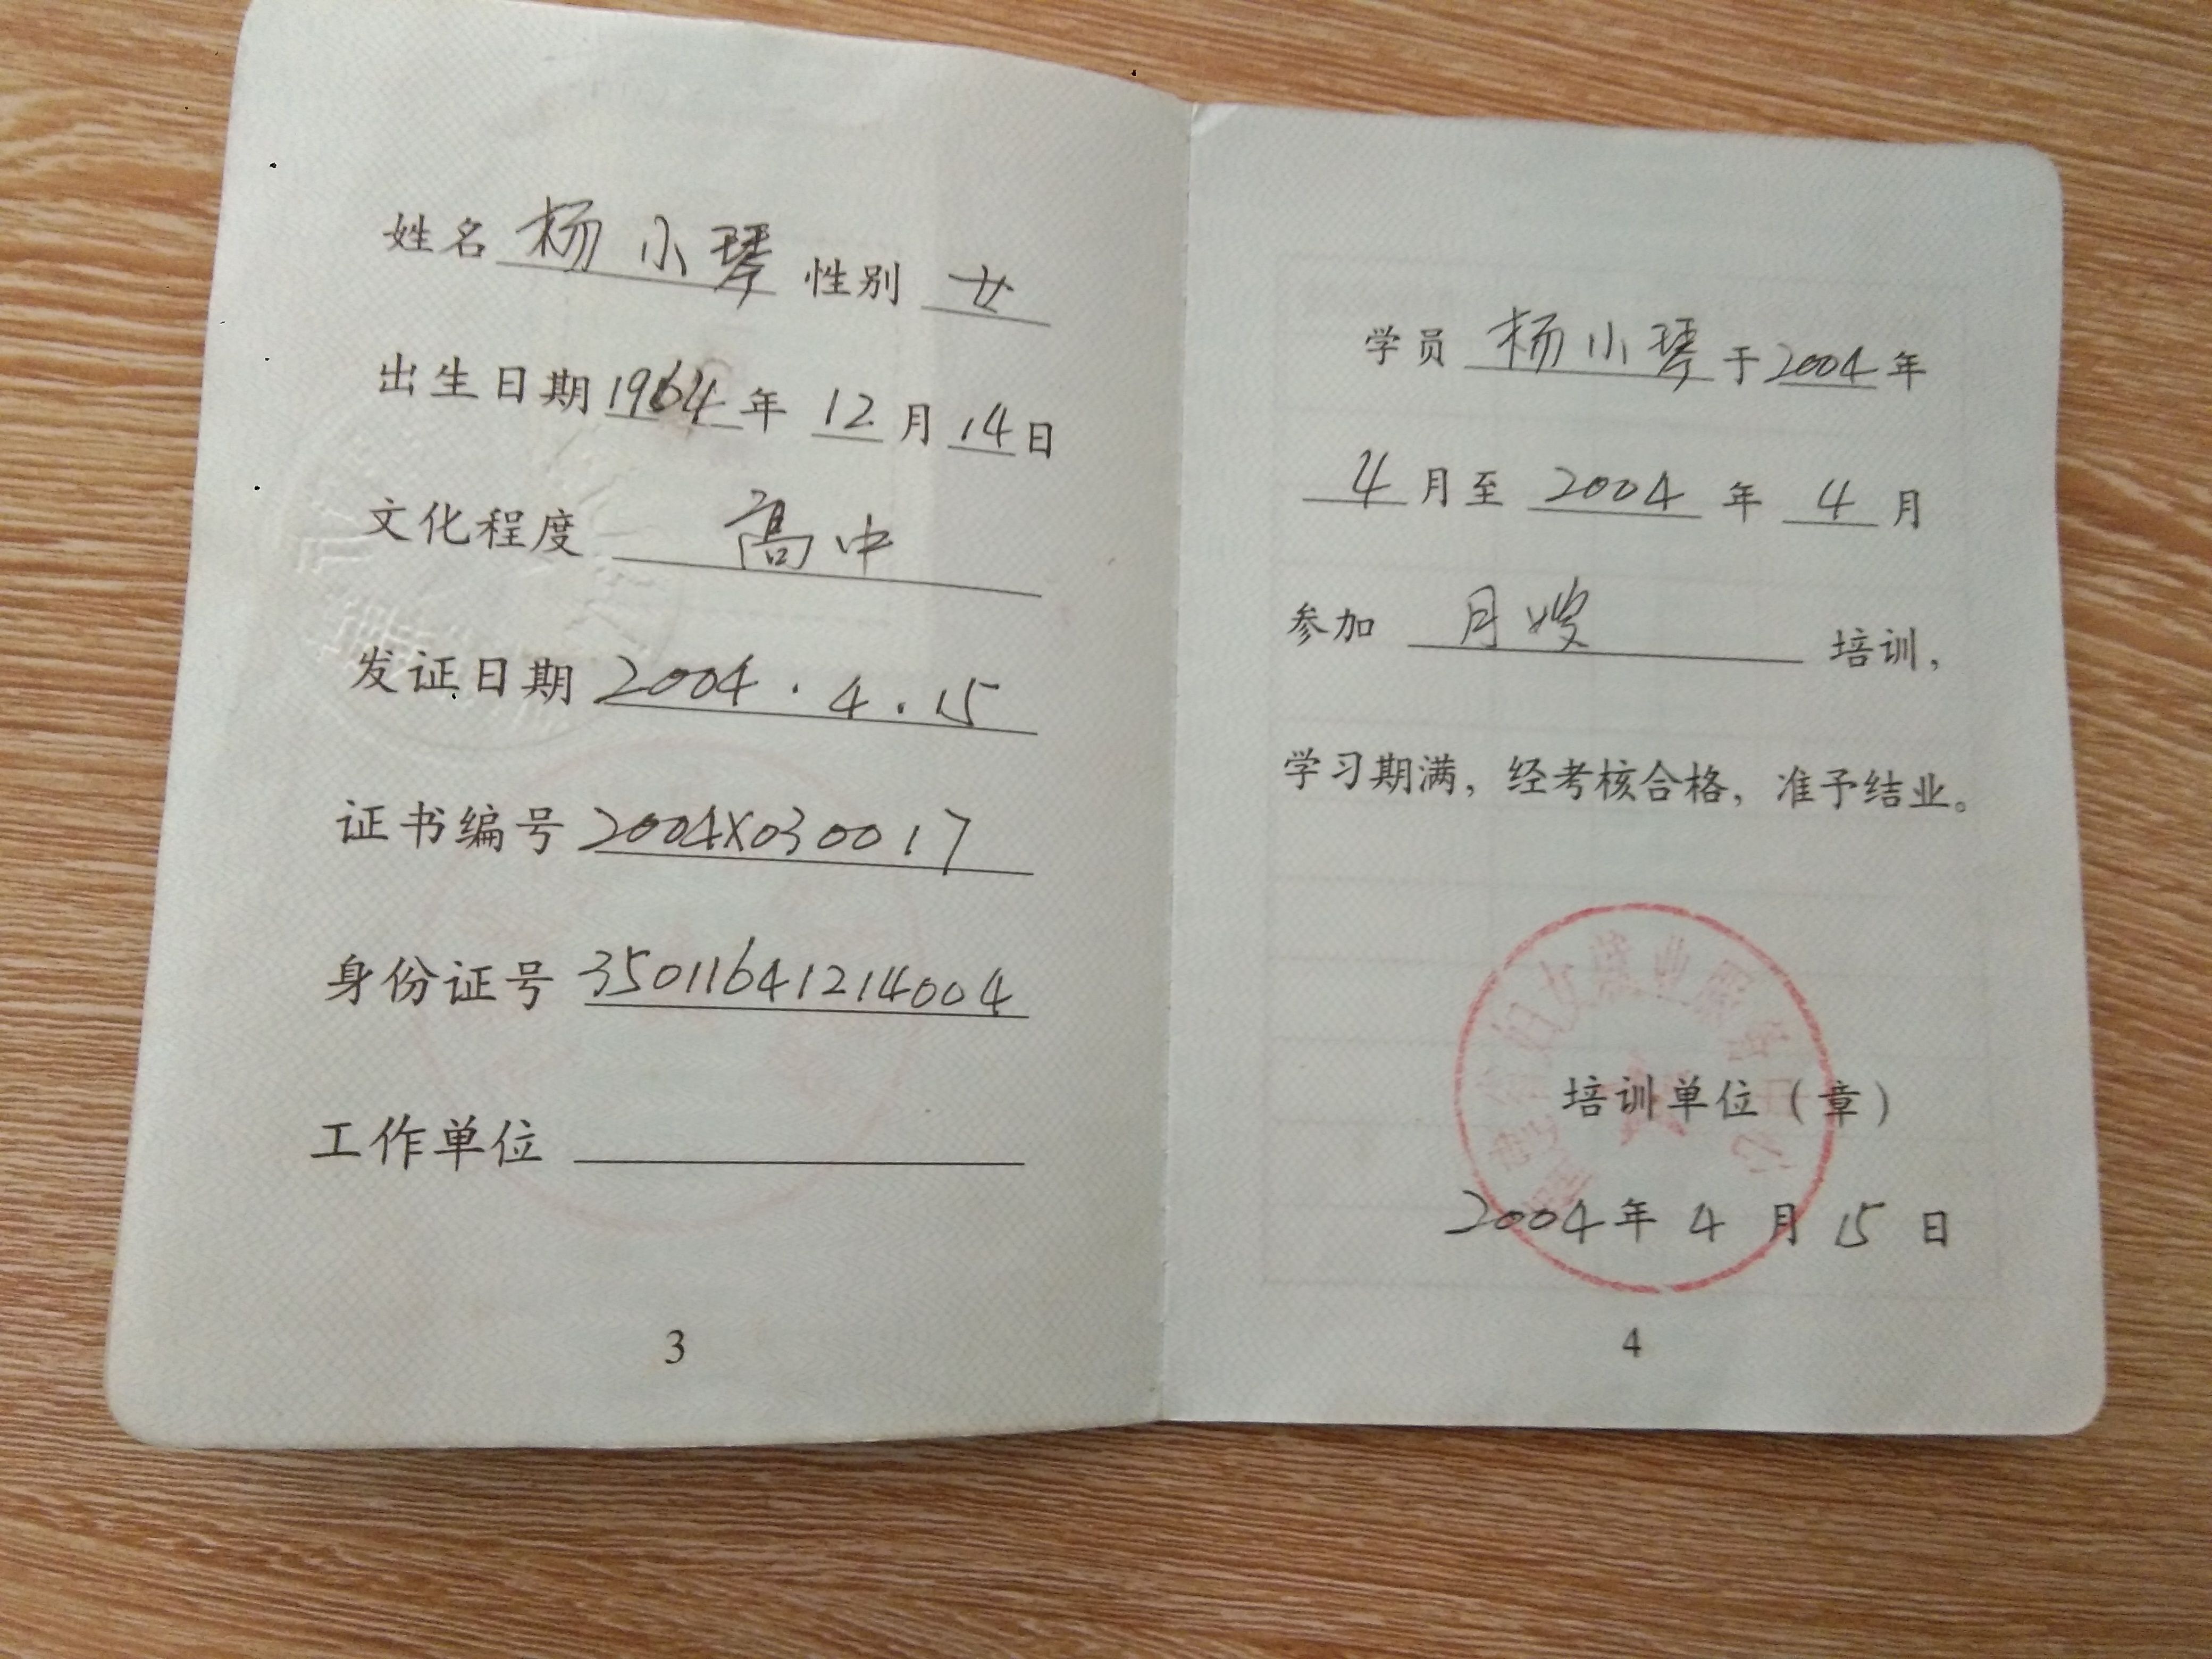 姓名 杨小琴 性别 女
出生日期 1964 年 12 月 14 日
文化程度 高中
发证日期 2004.4.15
证书编号 2004X030017
身份证号 35011641214004
工作单位
3
学员 杨小琴 于 2004 年
4 月至 2004 年 4 月
参加 月嫂 培训，
学习期满，经考核合格，准予结业。
妇女就业服务中心
培训单位（章）
2004 年 4 月 15 日
4